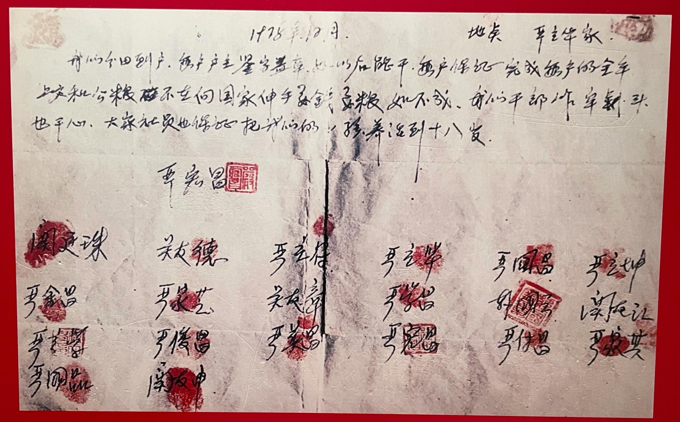 1978年12月 地点 严立华家
我们分田到户,每户户主签字盖章,如以后能干,每户保证完成每户的全年
上交和公粮 不在向国家伸手要钱要粮,如不成,我们干部作牢剎头
也干心,大家社员也保证把我们的小孩养活到十八岁.
严宏昌
关廷珠 关友德 严立符 严立华 严国昌 严立坤
严金昌 严家芝 关友章 严学昌 韩国云 关友江
严立学 严俊昌 严美昌 严宏昌 严付昌 严家其
严国品 关友申